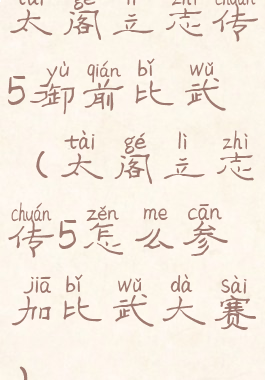 tài gé lì zhì chuán
太阁立志传
yù qián bǐ wǔ
5御前比武
tài gé lì zhì
(太阁立志
chuán zěn me cān
传5怎么参
jiā bǐ wǔ dà sài
加比武大赛
)